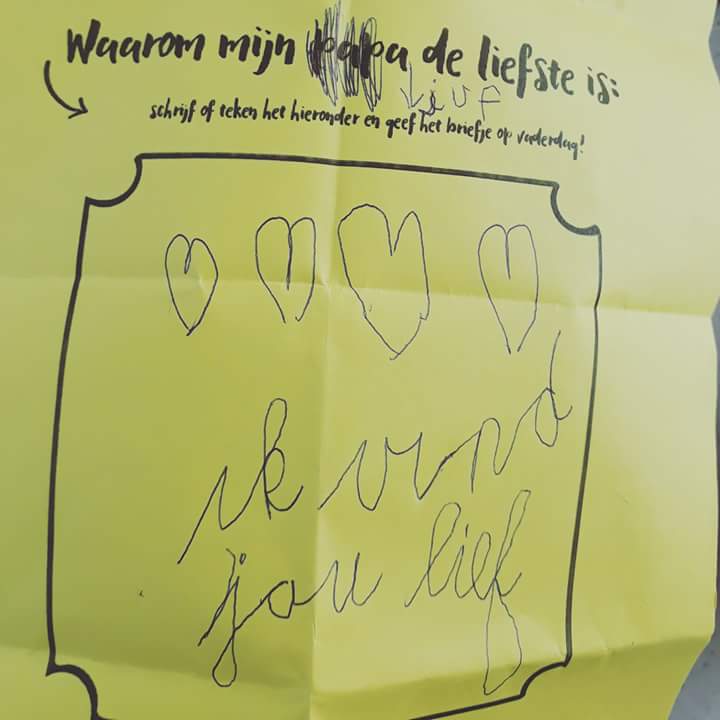 Waarom mijn papa de liefste is:
juf
schrijf of teken het hieronder en geef het briefje op vaderdag!
ik vind
jou lief